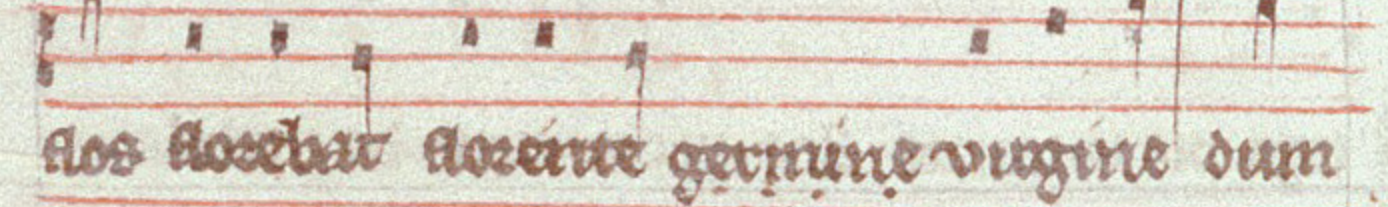 flos florebat florente germine virgine dum